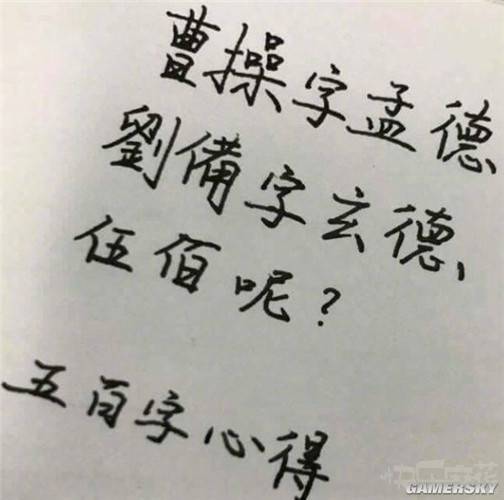 曹操字孟德
劉備字玄德
伍佰呢?
五百字心得
GAMERSKY